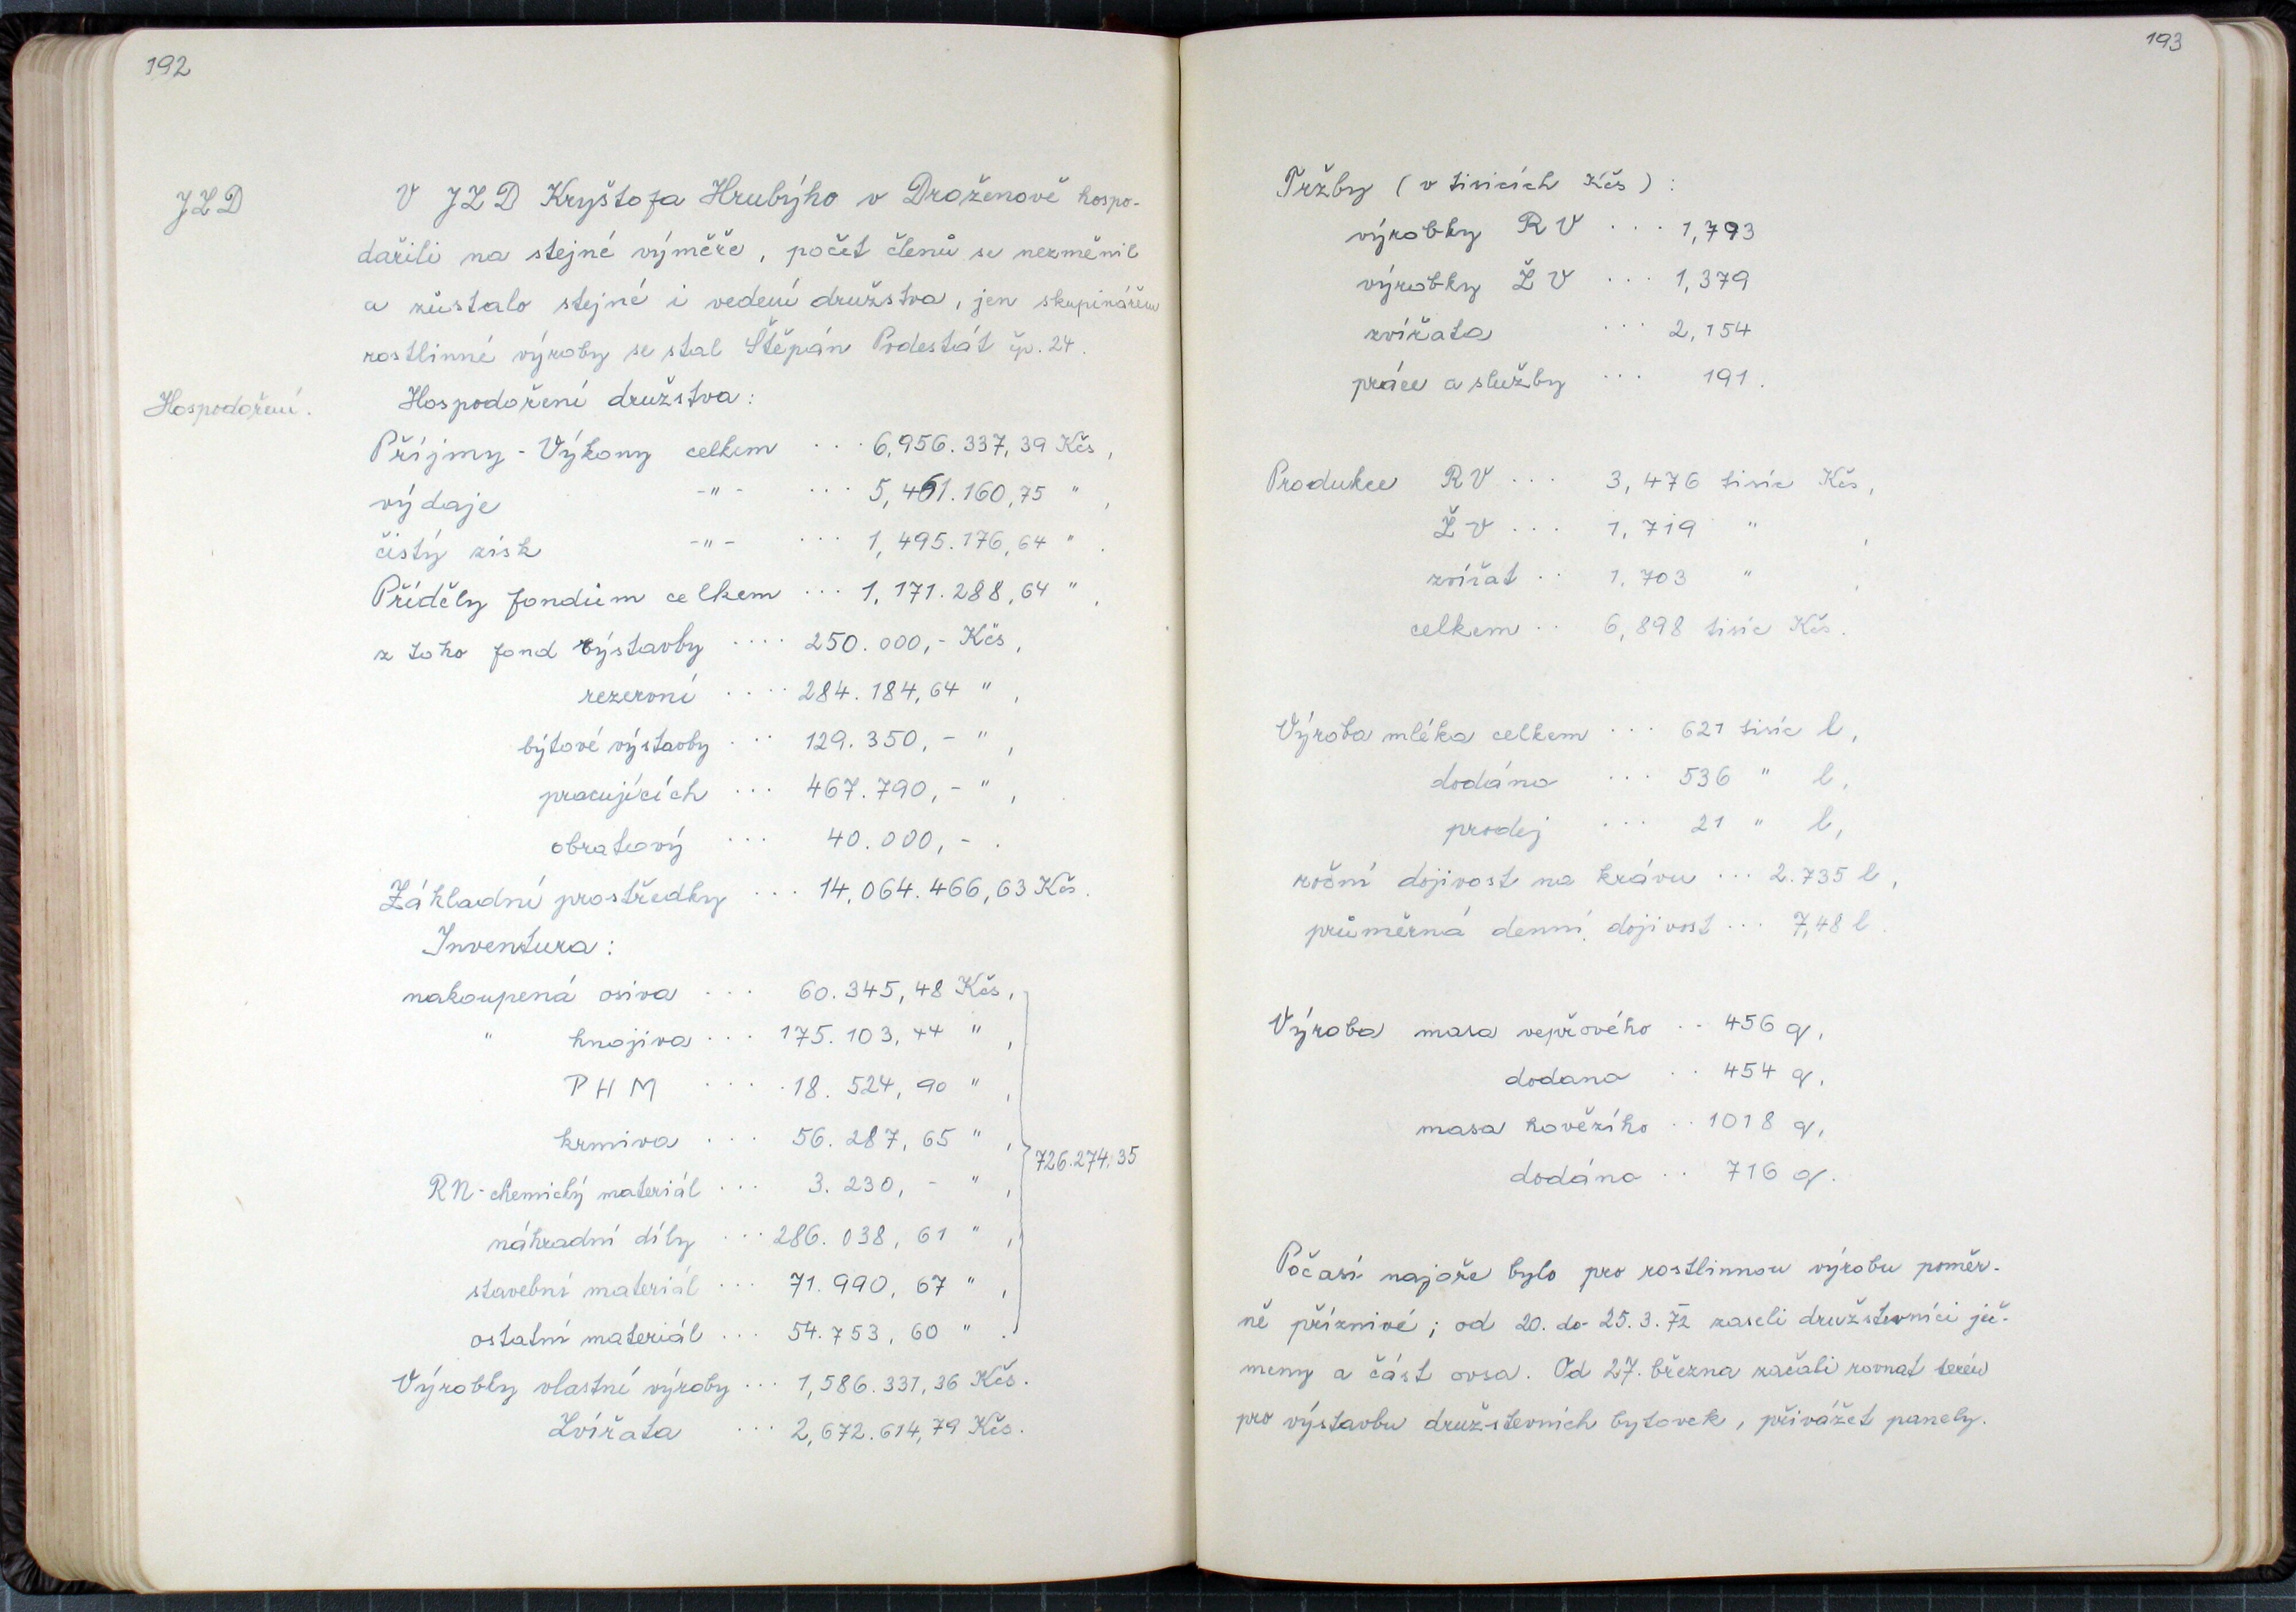 192
JZD
V JZD Kryštofa Hrubýho v Draženově hospo-
dařili na stejné výměře, počet členů se nezměnil
a zůstalo stejné i vedení družstva, jen skupinářem
rostlinné výroby se stal Štěpán Podestát čp. 24.
Hospodaření.
Hospodaření družstva:
Příjmy - Výkony celkem ... 6,956.337,39 Kčs,
výdaje -"- ... 5,461.160,75 ",
čistý zisk -"- ... 1,495.176,64 ".
Příděly fondům celkem ... 1,171.288,64 ",
z toho fond výstavby .... 250.000,- Kčs,
rezervní .... 284.184,64 ",
bytové výstavby ... 129.350,- ",
pracujících ... 467.790,- ",
obratový ... 40.000,- .
Základní prostředky ... 14,064.466,63 Kčs.
Inventura:
nakoupená osiva ... 60.345,48 Kčs,
" hnojiva ... 175.103,44 ",
PHM .... 18.524,90 ",
krmiva ... 56.287,65 ",
726.274,35
RN-chemický materiál ... 3.230,- ",
náhradní díly ... 286.038,61 ",
stavební materiál ... 71.990,67 ",
ostatní materiál ... 54.753,60 ".
Výrobky vlastní výroby ... 1,586.331,36 Kčs.
Zvířata ... 2,672.614,79 Kčs.
193
Tržby (v tisících Kčs):
výrobky RV ... 1,793
výrobky ŽV ... 1,379
zvířata ... 2,154
práce a služby ... 191.
Produkce RV ... 3,476 tisíc Kčs,
ŽV ... 1,719 " ,
zvířat .. 1,703 " ,
celkem .. 6,898 tisíc Kčs.
Výroba mléka celkem ... 621 tisíc l,
dodáno ... 536 " l,
prodej ... 21 " l,
roční dojivost na krávu ... 2.735 l,
průměrná denní dojivost ... 7,48 l.
Výroba masa vepřového .. 456 q,
dodano .. 454 q,
masa hovězího .. 1018 q,
dodáno .. 716 q.
Počasí najaře bylo pro rostlinnou výrobu poměr-
ně příznivé; od 20. do 25.3.72 zaseli družstevníci ječ-
meny a část ovsa. Od 27. března začali rovnat terén
pro výstavbu družstevních bytovek, přivážet panely.